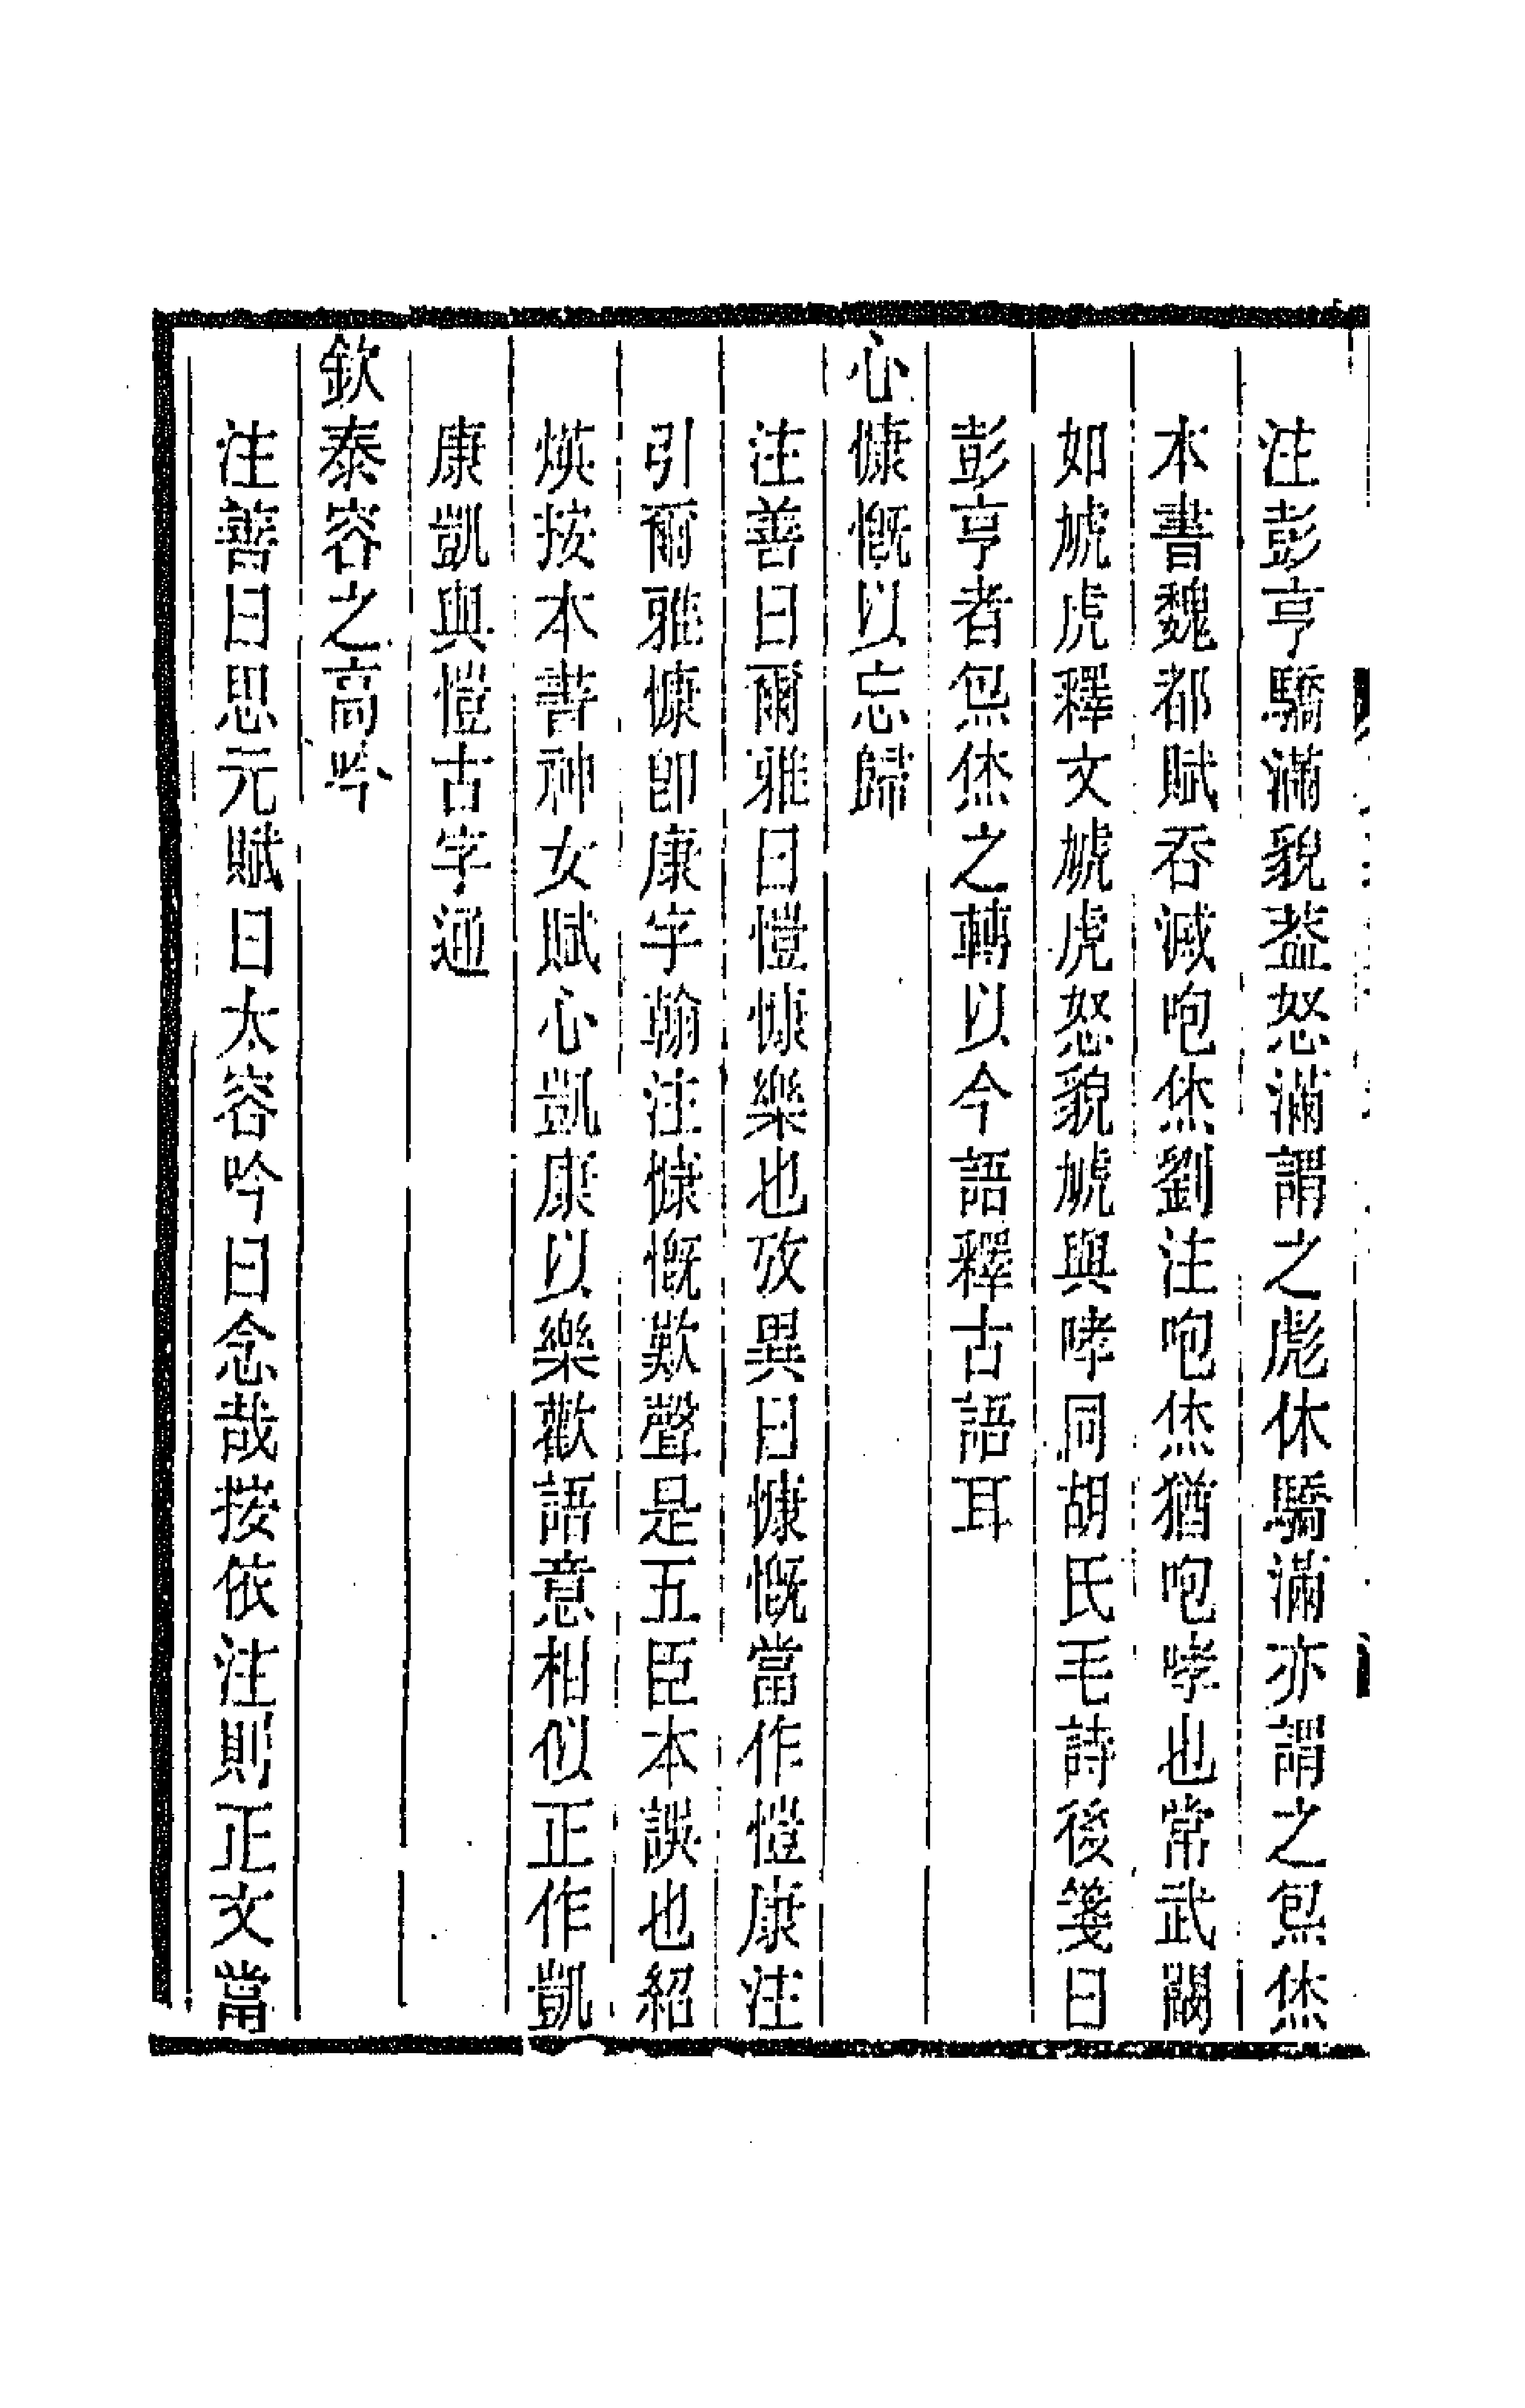 注彭亨驕滿貌葢怒滿謂之彪休驕滿亦謂之炰烋
本書魏都賦吞滅咆烋劉注咆烋猶咆哮也常武闞
如虓虎釋文虓虎怒貌虓與哮同胡氏毛詩後箋曰
彭亨者炰烋之轉以今語釋古語耳
心慷慨以忘歸
注善曰爾雅曰愷慷樂也攷異曰慷慨當作愷康注
引爾雅慷卽康字翰注慷慨歎聲是五臣本誤也紹
煐按本書神女賦心凱康以樂歡語意相似正作凱
康凱與愷古字通
欽泰容之高吟
注善曰思元賦曰太容吟曰念哉按依注則正文當